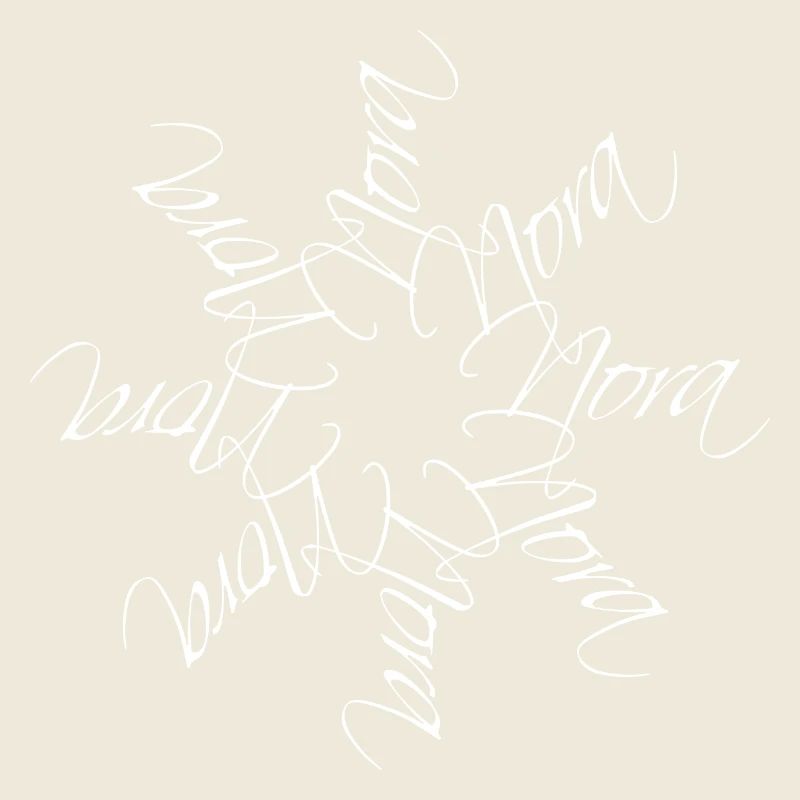 Nora
Nora
Nora
Nora
Nora
Nora
Nora
Nora